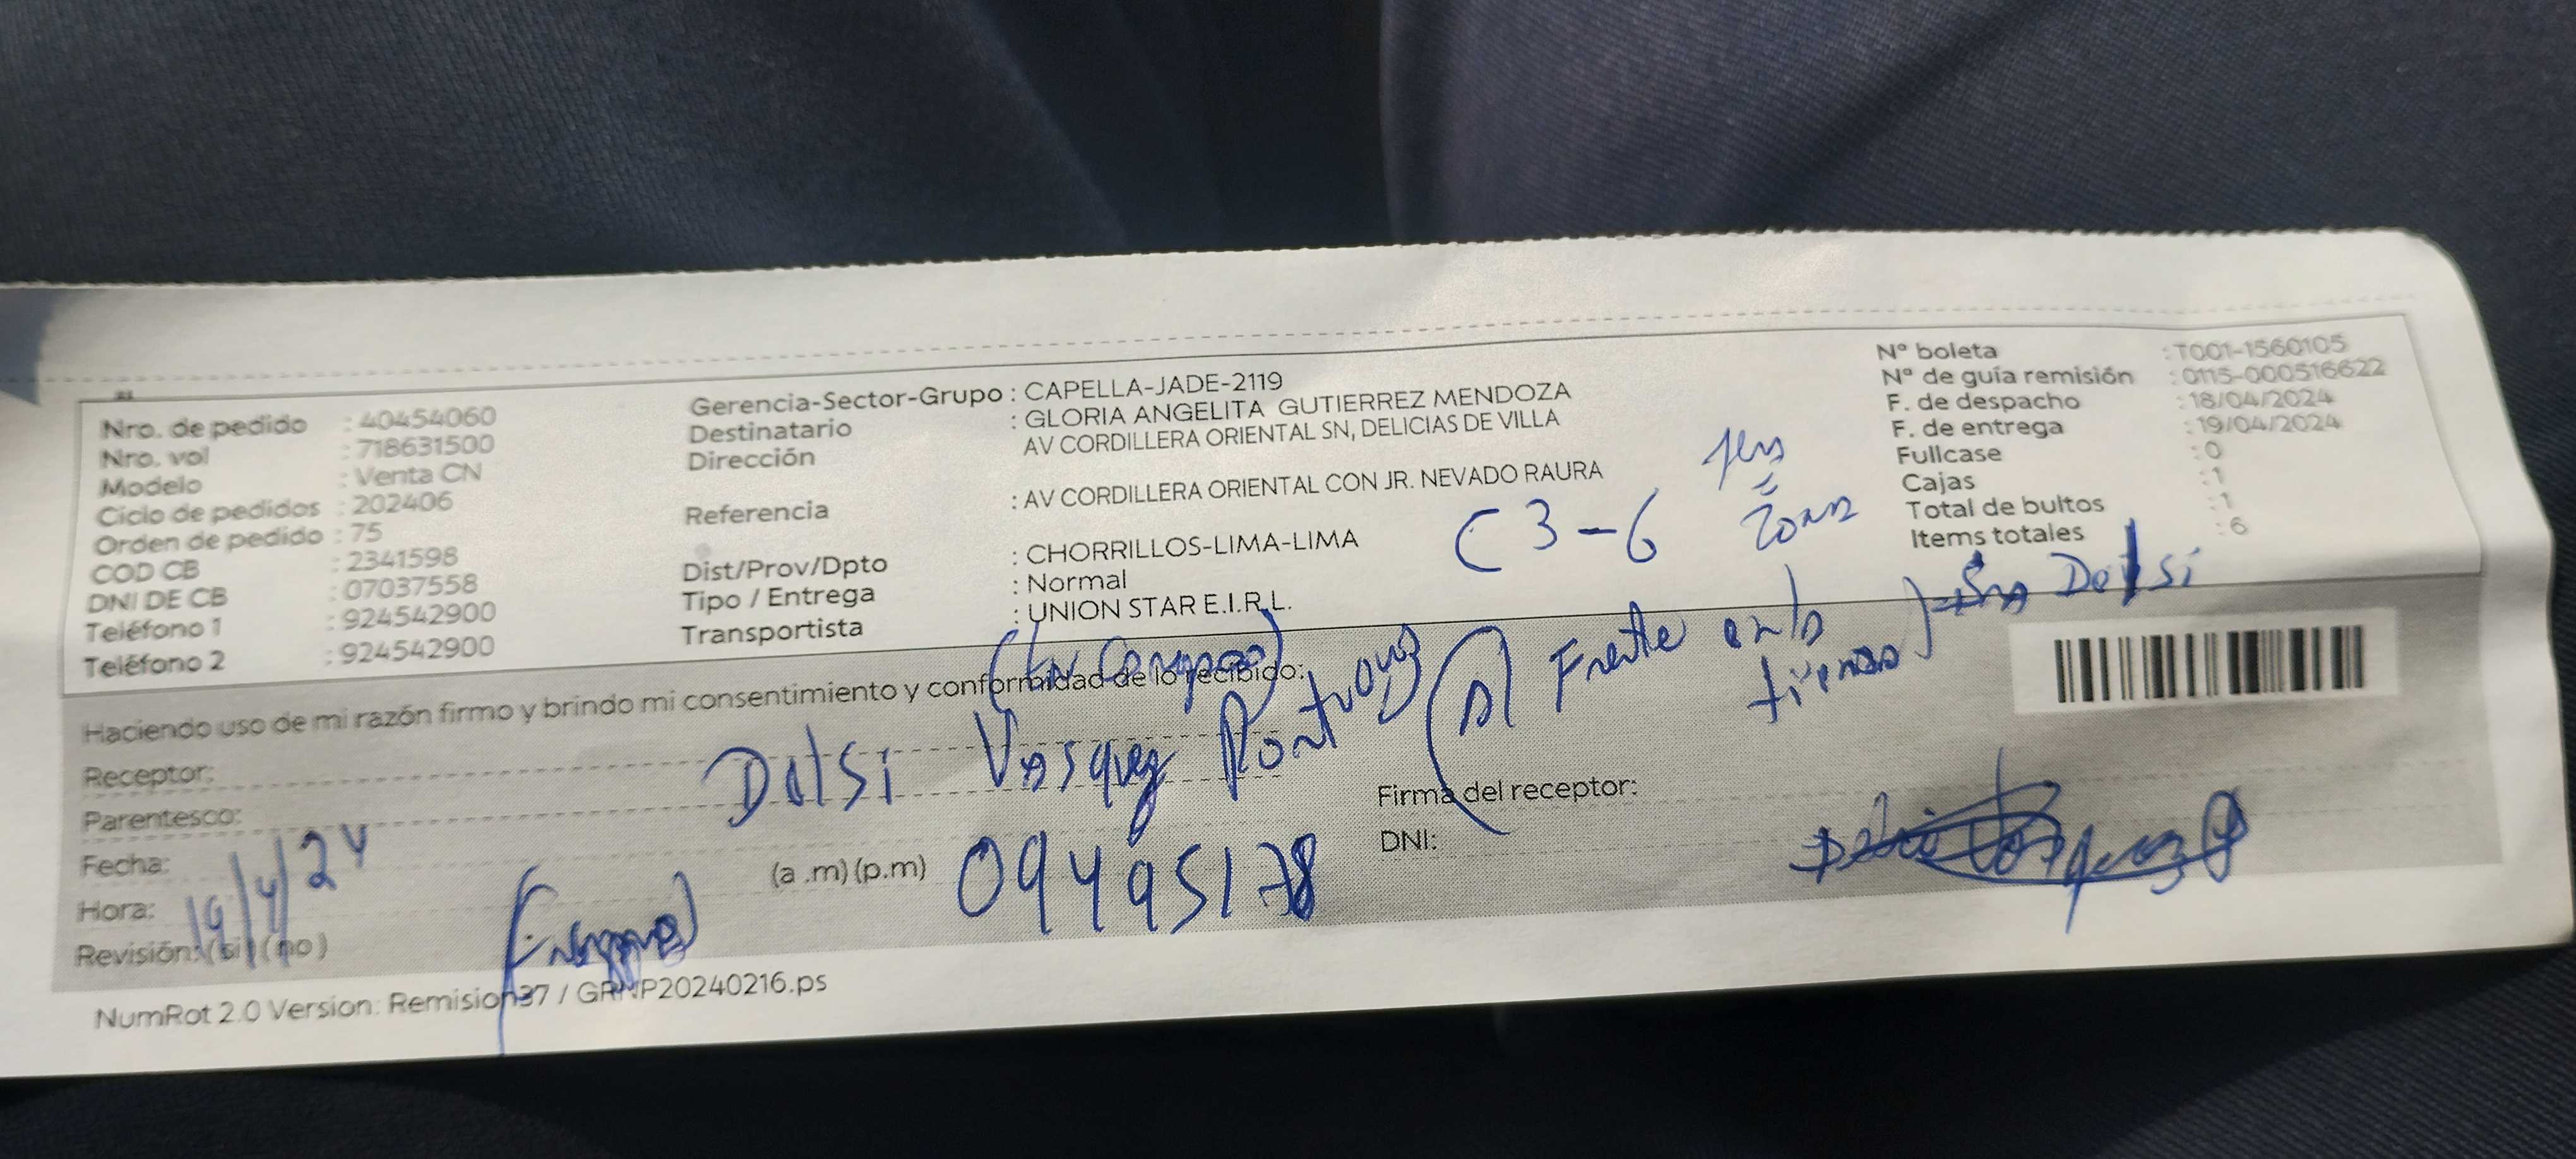 Nro. de pedido : 40454060
Nro. vol : 718631500
Modelo : Venta CN
Ciclo de pedidos : 202406
Orden de pedido : 75
COD CB : 2341598
DNI DE CB : 07037558
Teléfono 1 : 924542900
Teléfono 2 : 924542900
Gerencia-Sector-Grupo : CAPELLA-JADE-2119
Destinatario : GLORIA ANGELITA GUTIERREZ MENDOZA
Dirección AV CORDILLERA ORIENTAL SN, DELICIAS DE VILLA
Referencia : AV CORDILLERA ORIENTAL CON JR. NEVADO RAURA
Dist/Prov/Dpto : CHORRILLOS-LIMA-LIMA
Tipo / Entrega : Normal
Transportista : UNION STAR E.I.R.L.
N° boleta : T001-1560105
N° de guía remisión : 0115-000516622
F. de despacho : 18/04/2024
F. de entrega : 19/04/2024
Fullcase : 0
Cajas : 1
Total de bultos : 1
Items totales : 6
C 3-6
Zona
Frente en la
tienda
Haciendo uso de mi razón firmo y brindo mi consentimiento y conformidad de lo recibido:
Receptor:
Dalsi Vasquez
Parentesco:
Fecha:
19/4/24
Hora: (a .m) (p.m)
09495178
Revisión: (si) (no)
Firma del receptor:
DNI:
NumRot 2.0 Version: Remision37 / GRNP20240216.ps